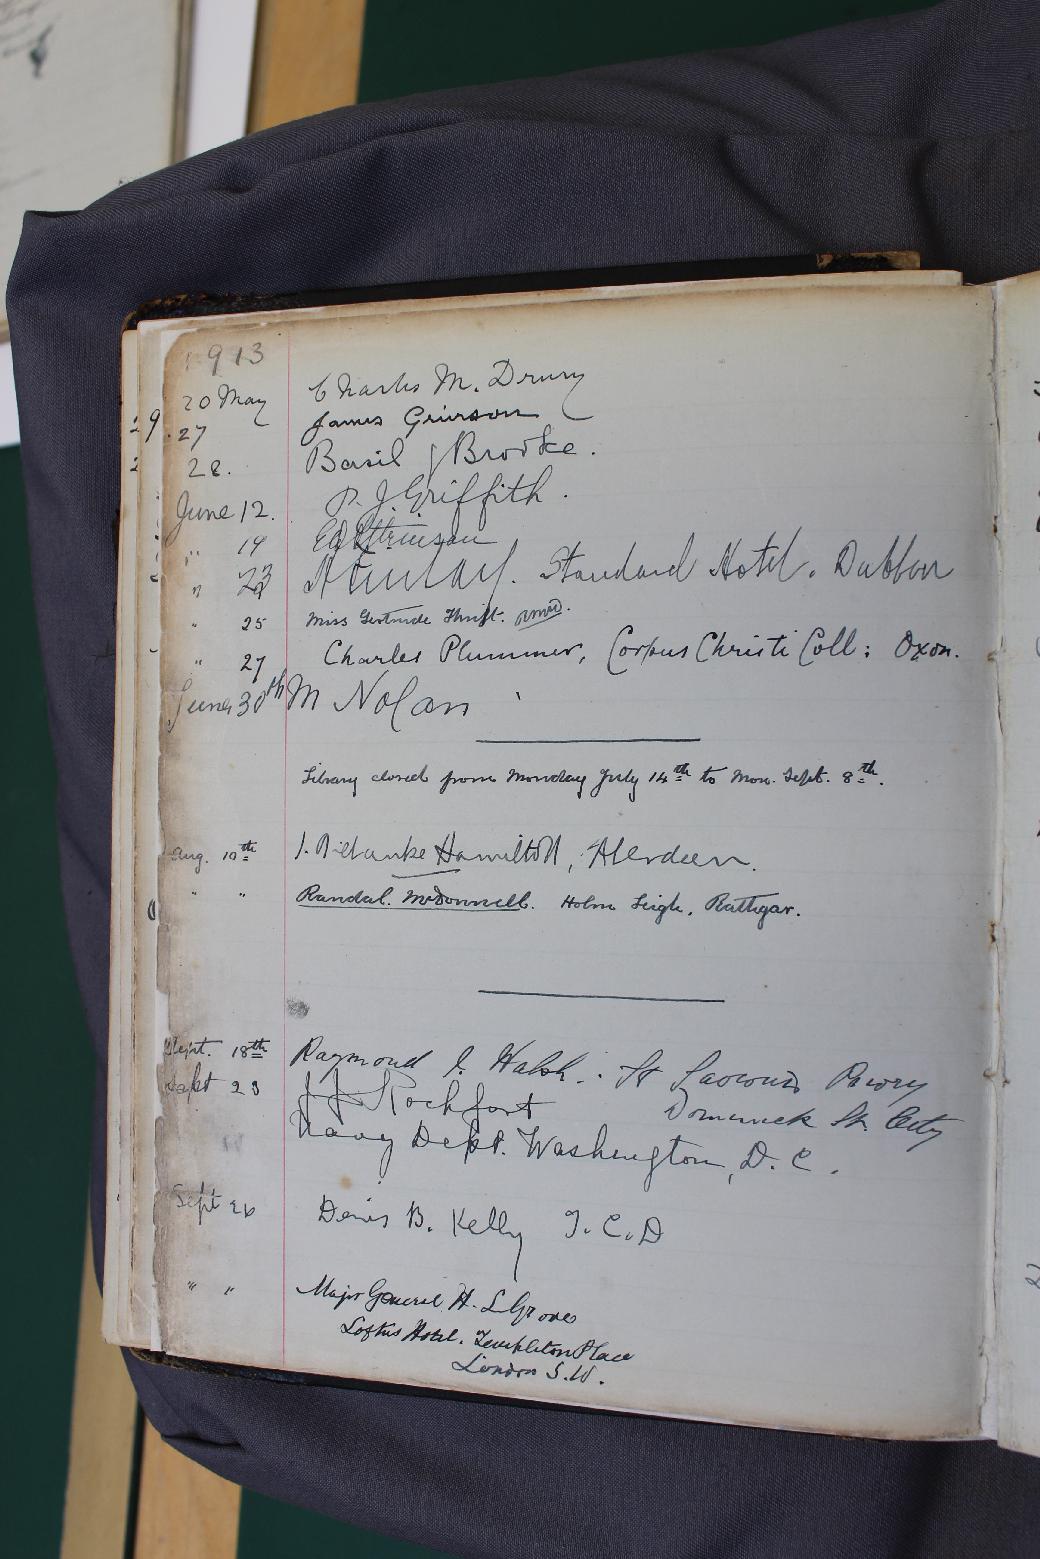 1913
20 May Charles M. Drury
27 James Grierson
28. Basil J Brooke.
June 12. P. J. Griffith.
" 19
" 23 Standard Hotel. Dublin
" 25 Miss Gertrude Thrift.
" 27 Charles Plummer, Corpus Christi Coll: Oxon.
June 30th M Nolan
Library closed from Monday July 14th to Mon. Sept. 8th.
Aug. 10th J. Milbanke Hamilton, Aberdeen.
" " Randal McDonnell. Holm Leigh, Rathgar.
Sept. 18th Raymond J. Walsh. St Saviours Priory
Dominick St. City
Sept 23 J J Rochfort
Navy Dept. Washington, D. C.
Sept 26 Denis B. Kelly T. C. D
" " Major General H. L Groves
Loftus Hotel. Templeton Place
London S.W.